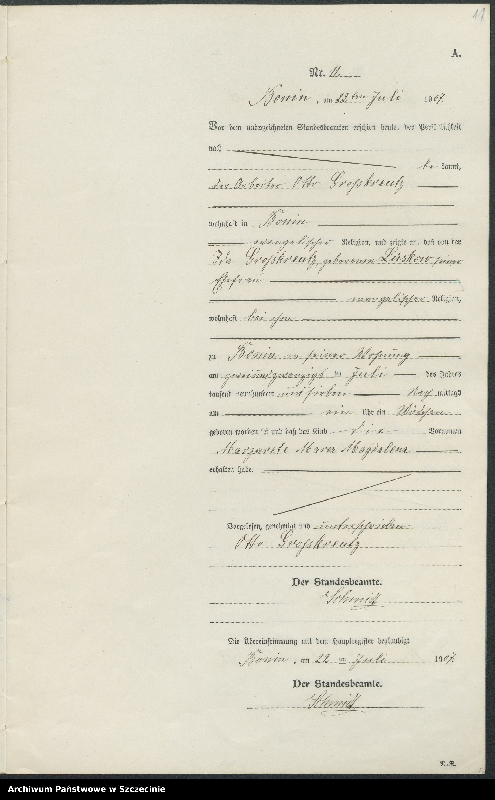 11
A.
Nr. 11
Konin, am 22ten Juli 1907.
Vor dem unterzeichneten Standesbeamten erschien heute, der Persönlichkeit
nach
be kannt,
der Arbeiter Otto Groskreutz
wohnhaft in Konin
evangelischer Religion, und zeigte an, daß von der
Ida Groskreutz geborenen Lüskow, seiner
Ehefrau
evangelischer Religion,
wohnhaft bei ihm
zu Konin in seiner Wohnung
am zweiundzwanzigsten Juli des Jahres
tausend neunhundert und sieben Nach mittags
um ein Uhr ein Mädchen
geboren worden sei und daß das Kind die Vornamen
Margarete Maria Magdalena
erhalten habe.
Vorgelesen, genehmigt und unterschrieben
Otto Groskreutz
Der Standesbeamte.
Schmidt
Die Übereinstimmung mit dem Hauptregister beglaubigt
Konin, am 22ten Juli 1907.
Der Standesbeamte.
Schmidt
Archiwum Państwowe w Szczecinie